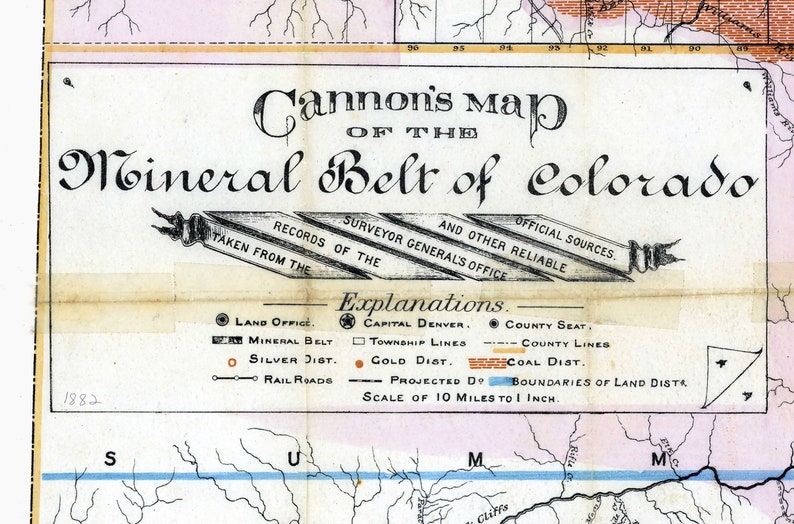 Williams R
96 95 94 93 92 91 90 89
Williams Ri
Cannon's Map
OF THE
Mineral Belt of Colorado
TAKEN FROM THE RECORDS OF THE SURVEYOR GENERAL'S OFFICE AND OTHER RELIABLE OFFICIAL SOURCES.
Explanations.
LAND OFFICE. CAPITAL DENVER. COUNTY SEAT.
MINERAL BELT TOWNSHIP LINES COUNTY LINES
SILVER DIST. GOLD DIST. COAL DIST.
RAIL ROADS PROJECTED Do BOUNDARIES OF LAND DISTS.
SCALE OF 10 MILES TO 1 INCH.
1882
S U M M
Rifle C.
Elk C.
Cliffs